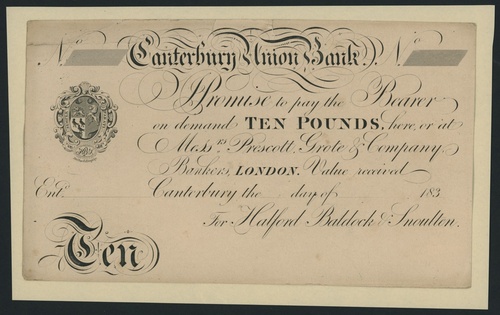 No Canterbury Union Bank. No
I Promise to pay the Bearer
on demand TEN POUNDS, here, or at
Messrs Prescott, Grote & Company,
Bankers, LONDON. Value received
Entd. Canterbury the day of 183
For Halford Baldock & Snoulten.
Ten